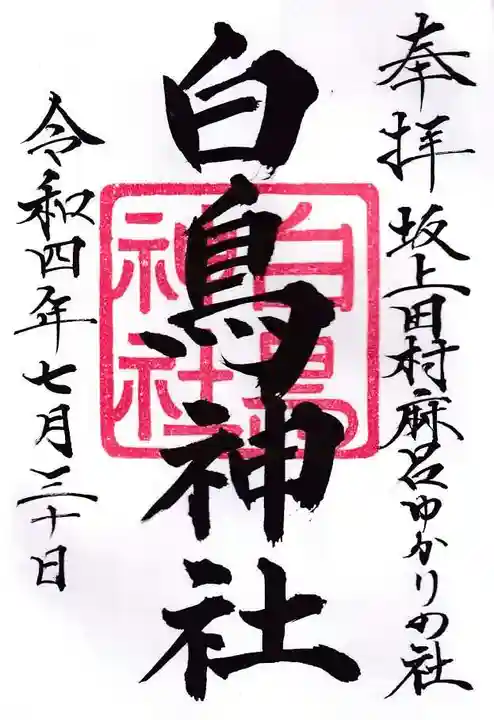 奉拝 坂上田村麻呂ゆかりの社
白鳥神社
白鳥
神社
令和四年七月三十日